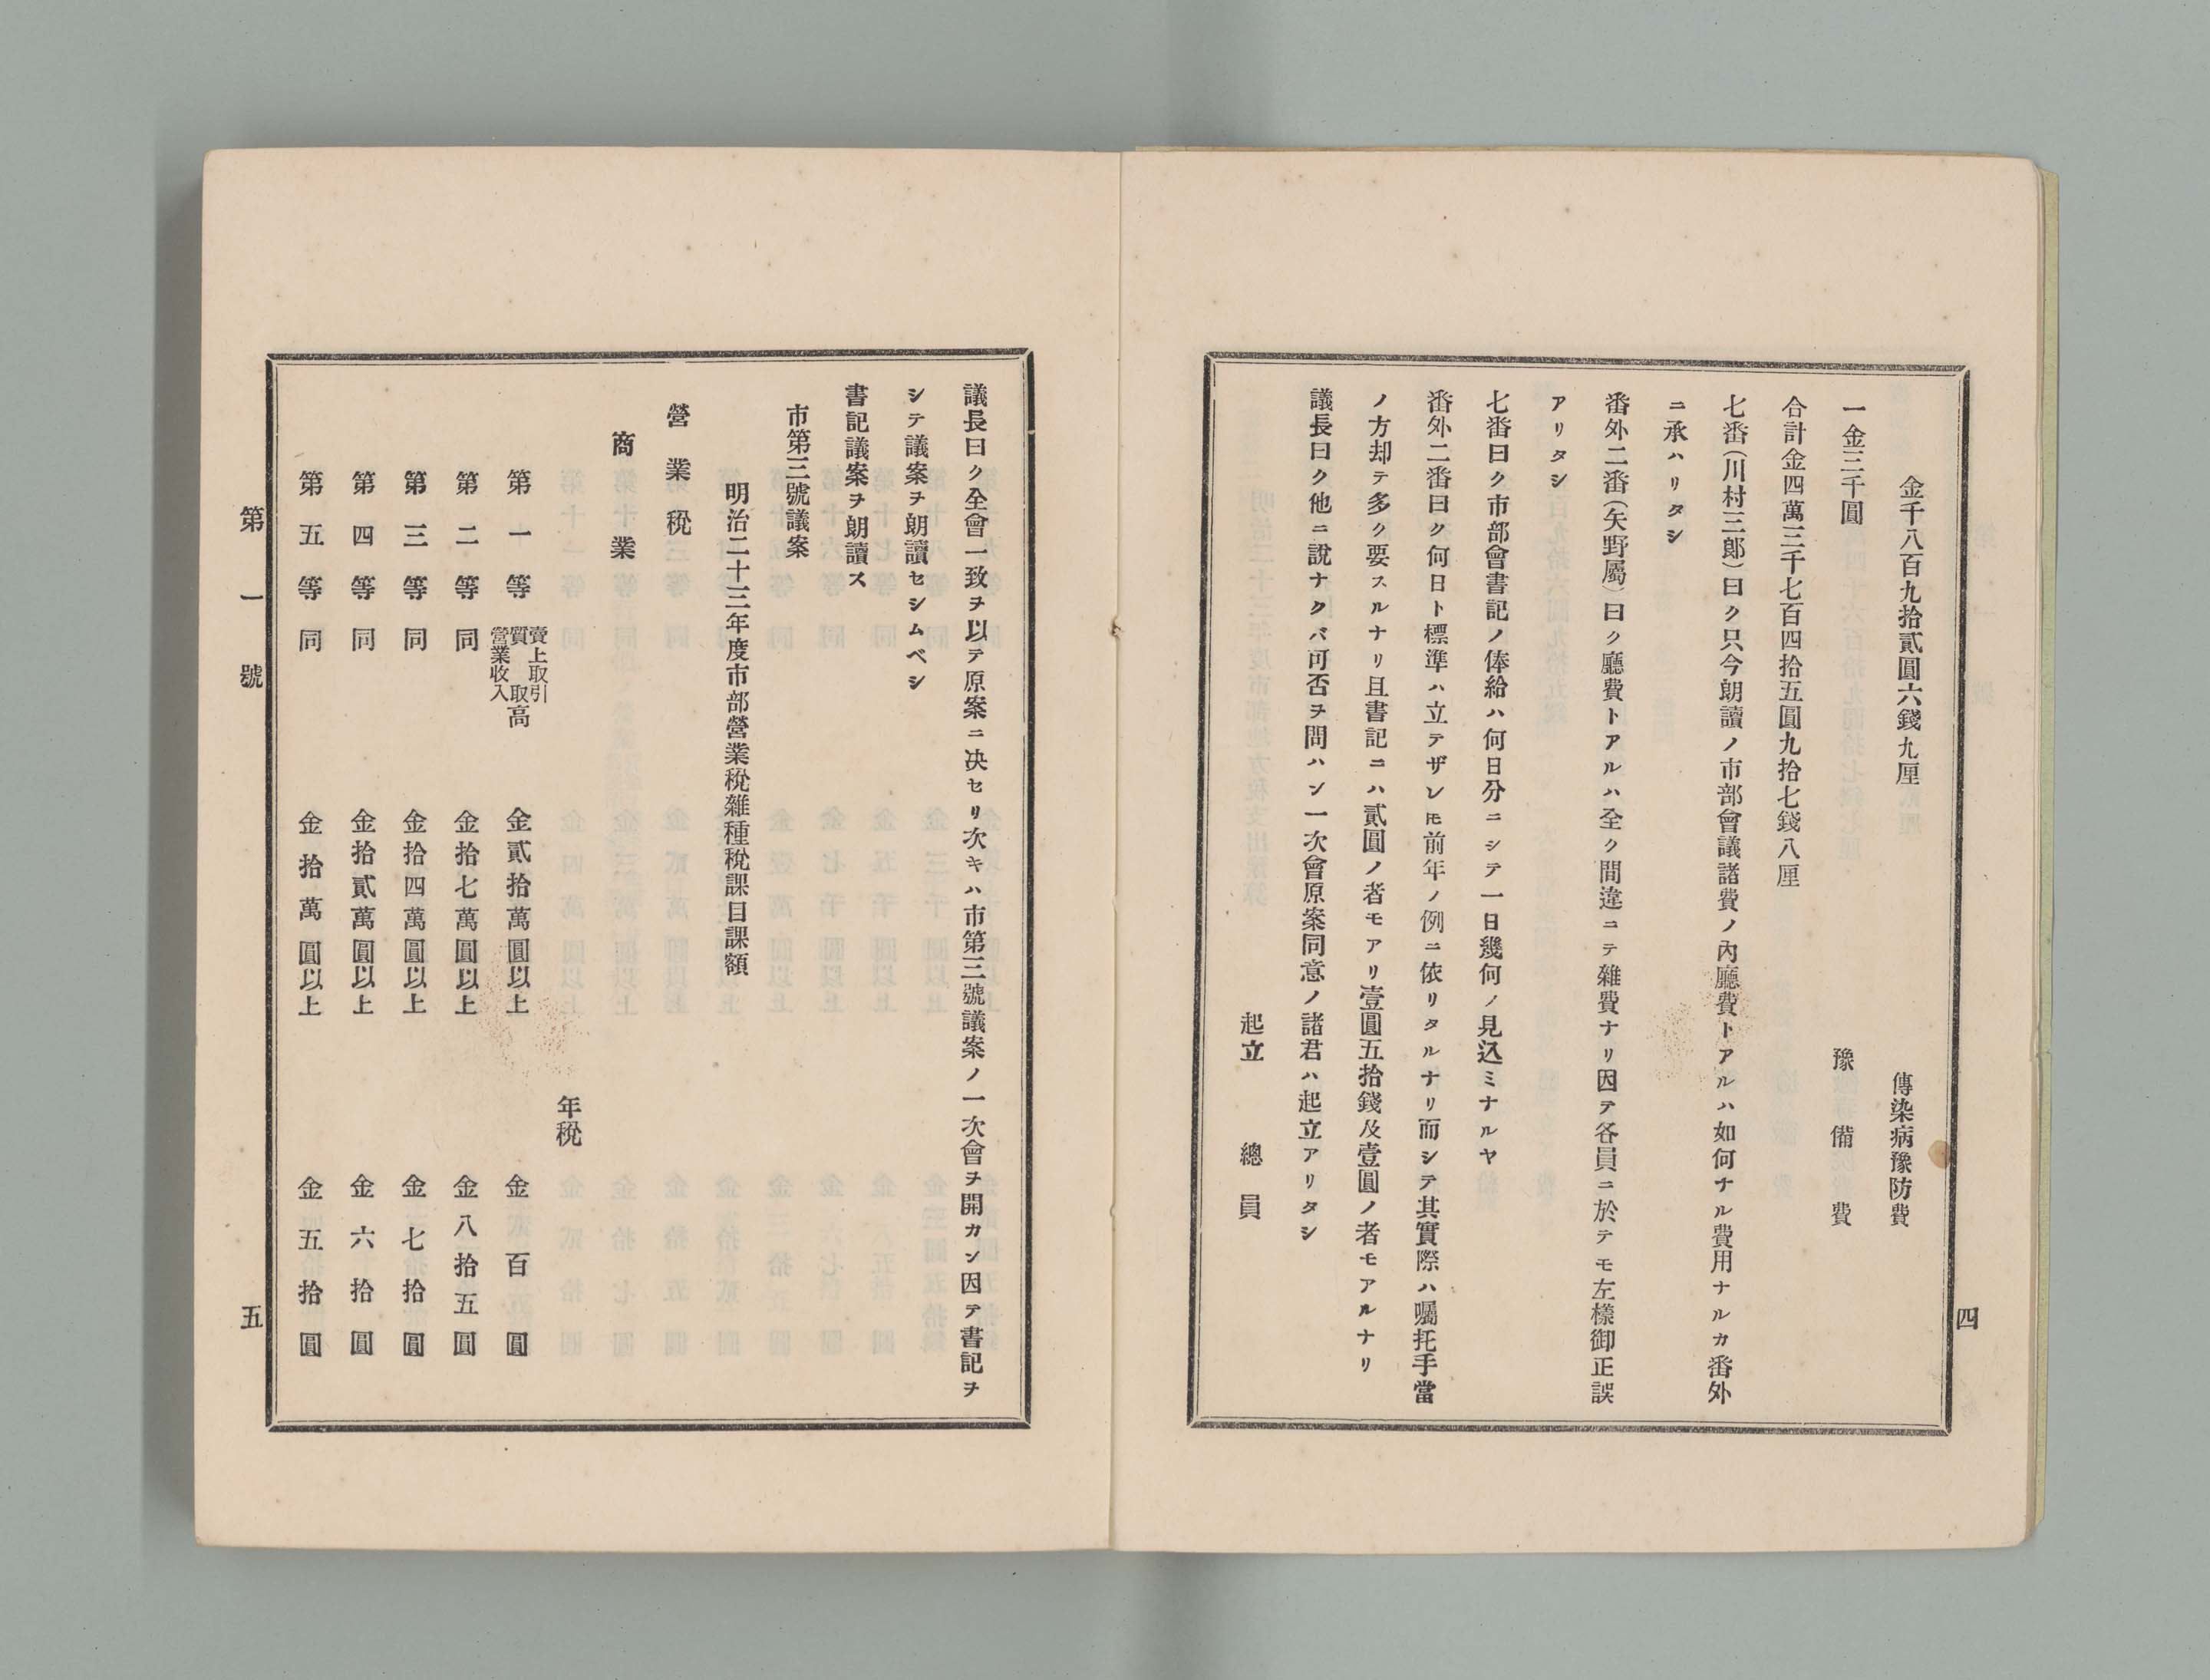 四
金千八百九拾貳圓六錢九厘　傳染病豫防費
一金三千圓　豫備費
合計金四萬三千七百四拾五圓九拾七錢八厘
七番（川村三郞）曰ク只今朗讀ノ市部會議諸費ノ內廳費トアルハ如何ナル費用ナルカ番外
ニ承ハリタシ
番外二番（矢野屬）曰ク廳費トアルハ全ク間違ニテ雜費ナリ因テ各員ニ於テモ左樣御正誤
アリタシ
七番曰ク市部會書記ノ俸給ハ何日分ニシテ一日幾何ノ見込ミナルヤ
番外二番曰ク何日ト標準ハ立テザレ𪜈前年ノ例ニ依リタルナリ而シテ其實際ハ囑托手當
ノ方却テ多ク要スルナリ且書記ニハ貳圓ノ者モアリ壹圓五拾錢及壹圓ノ者モアルナリ
議長曰ク他ニ說ナクバ可否ヲ問ハン一次會原案同意ノ諸君ハ起立アリタシ
起立　總員
議長曰ク全會一致ヲ以テ原案ニ决セリ次キハ市第三號議案ノ一次會ヲ開カン因テ書記ヲ
シテ議案ヲ朗讀セシムベシ
書記議案ヲ朗讀ス
市第三號議案
明治二十三年度市部營業稅雜種稅課目課額
營業稅
商業
年稅
第一等　賣上取引質取營業收入高　金貳拾萬圓以上　金百圓
第二等　同　金拾七萬圓以上　金八拾五圓
第三等　同　金拾四萬圓以上　金七拾圓
第四等　同　金拾貳萬圓以上　金六拾圓
第五等　同　金拾萬圓以上　金五拾圓
第一號　五